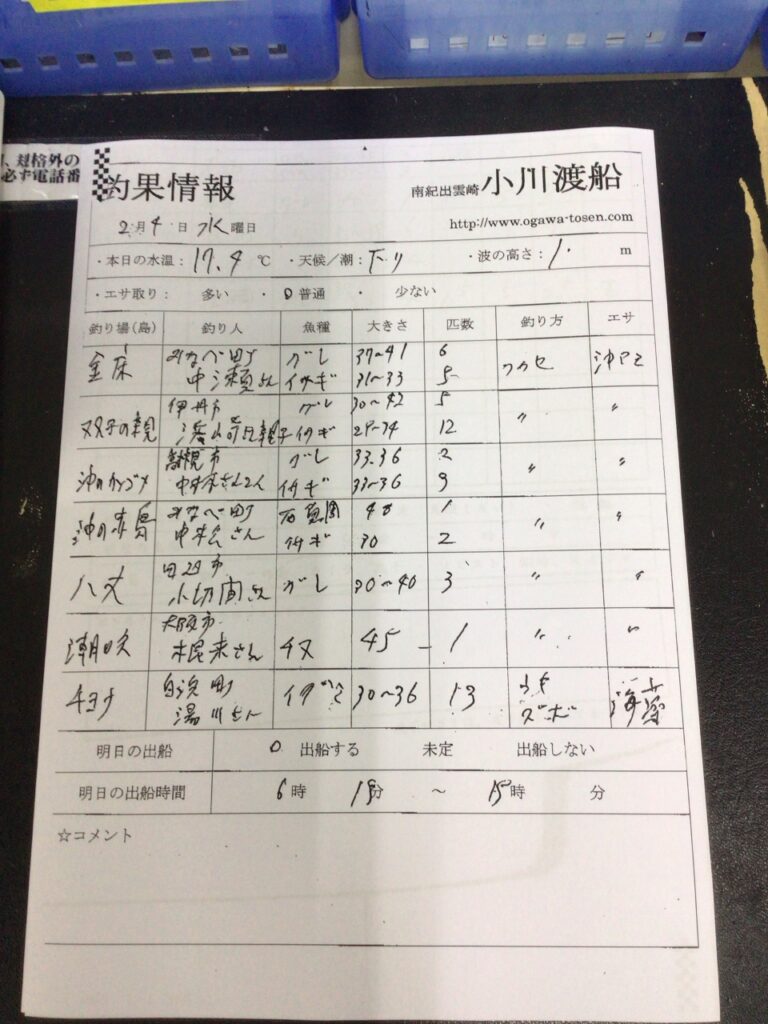 、規格外の
必ず電話番
釣果情報
南紀出雲崎 小川渡船
2月4日 水曜日
http://www.ogawa-tosen.com
・本日の水温: 17.4 ℃ ・天候/潮: 下り ・波の高さ: 1. m
・エサ取り: 多い ・ 0 普通 ・ 少ない
釣り場(島) 釣り人 魚種 大きさ 匹数 釣り方 エサ
金床 みなべ町 グレ 37~41 6 フカセ 沖アミ
中瀬さん イサギ 31~33 5
双子の親 伊丹市 グレ 30~42 5 〃 〃
親子 イサギ 29~34 12
グレ 33.36 2 〃 〃
沖のカゴメ さん2人 イサギ 33~36 9
沖の赤島 みなべ町 石鯛 48 1 〃 〃
さん イサギ 30 2
八丈 田辺市 グレ 30~40 3 〃 〃
小切間さん
潮吹 大阪市 チヌ 45 1 〃 〃
根来さん
チョナ 白浜町 イガミ 30~36 13 ウキ 海藻
湯川さん ズボ
明日の出船 0 出船する 未定 出船しない
明日の出船時間 6時 15分 ~ 15時 分
☆コメント